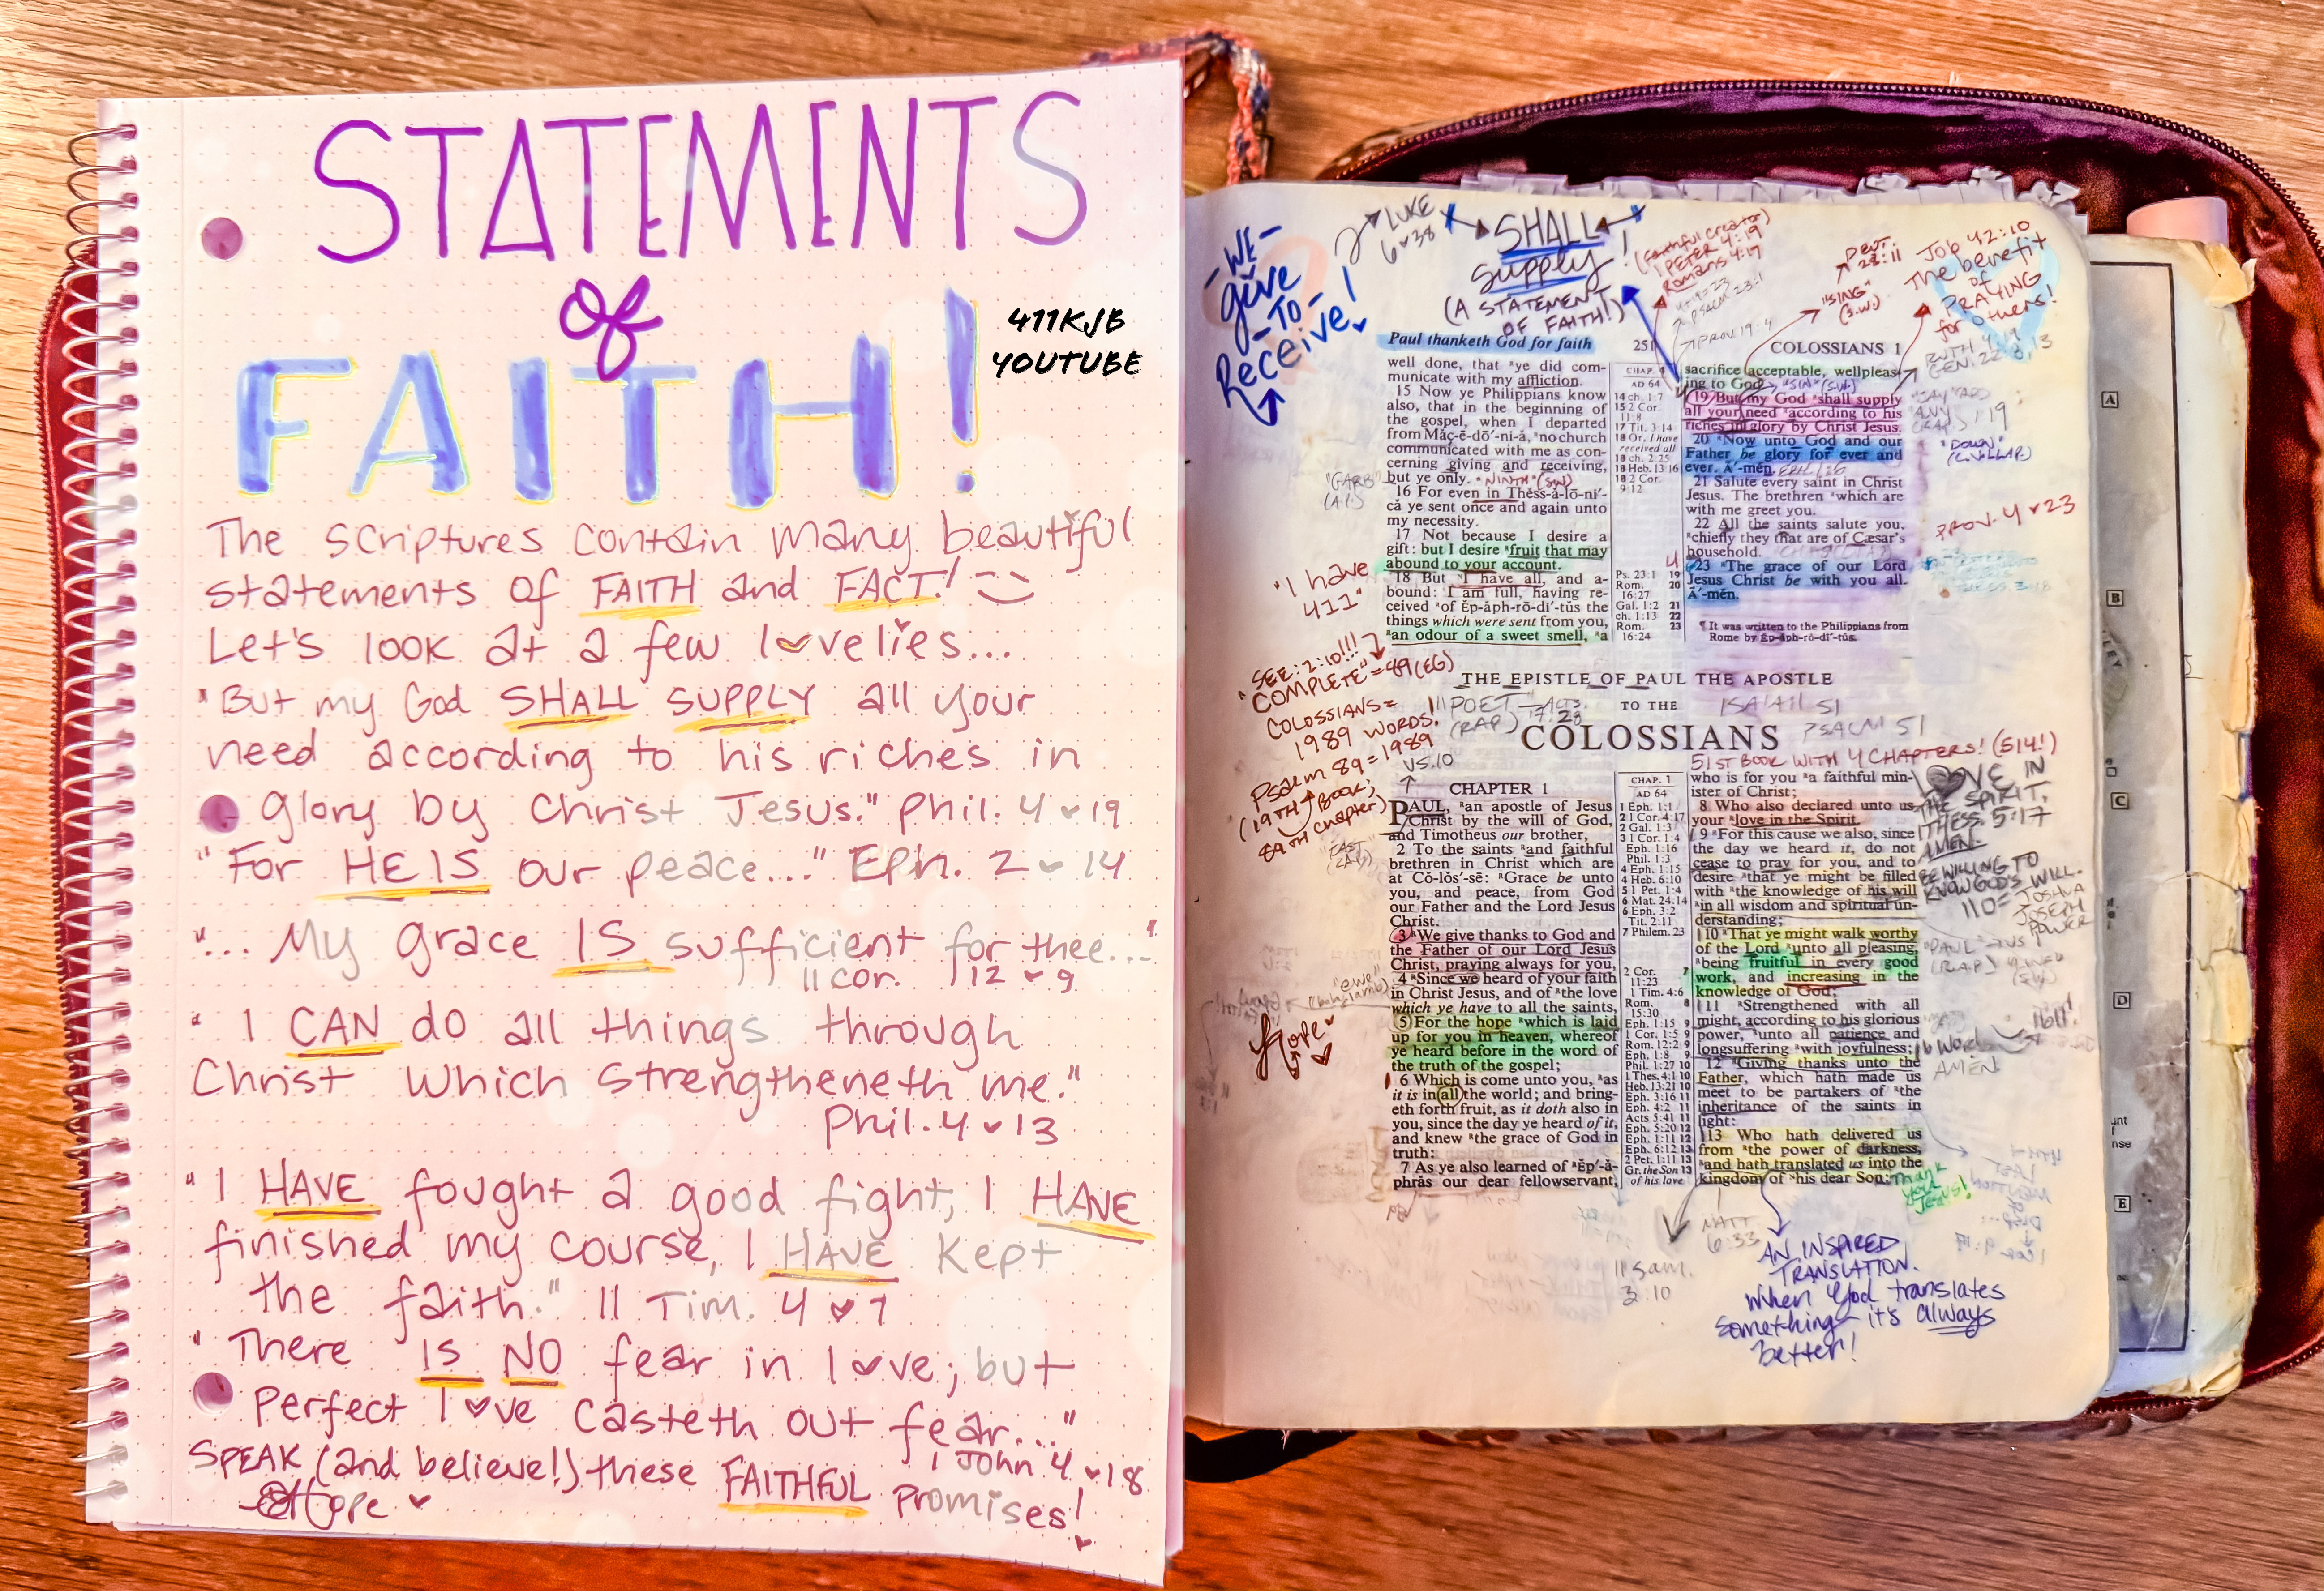 STATEMENTS
of
FAITH!
411KJB
YOUTUBE
The scriptures contain many beautiful
statements of FAITH and FACT!
Let's look at a few lovelies...
"But my God SHALL SUPPLY all your
need according to his riches in
glory by Christ Jesus." Phil. 4 19
"For HE IS our peace..." Eph. 2 14
"... My grace IS sufficient for thee..."
II Cor. 12 9
"I CAN do all things through
Christ which strengtheneth me."
Phil. 4 13
"I HAVE fought a good fight, I HAVE
finished my course, I HAVE kept
the faith." II Tim. 4 7
"There IS NO fear in love; but
perfect love casteth out fear..."
1 John 4 18
SPEAK (and believe!) these FAITHFUL promises!
Hope
-WE-
give
-TO-
Receive!
LUKE
6 38
SHALL
supply!
(A STATEMENT
OF FAITH!)
(faithful creator)
1 PETER 4:19
Romans 4:19
PSALM 23:1
PROV. 19:4
"SING"
(S.W.)
Job 42:10
The benefit
of
PRAYING
for others!
Paul thanketh God for faith
251
COLOSSIANS 1
well done, that ye did com-
municate with my affliction.
15 Now ye Philippians know
also, that in the beginning of
the gospel, when I departed
from Măç-ē-dō′-nĭ-å, no church
communicated with me as con-
cerning giving and receiving,
but ye only. "NINTH" (SW)
16 For even in Thĕss-å-lō-nī′-
că ye sent once and again unto
my necessity.
17 Not because I desire a
gift: but I desire fruit that may
abound to your account.
18 But I have all, and a-
bound: I am full, having re-
ceived of Ĕp-ăph-rō-dī′-tŭs the
things which were sent from you,
an odour of a sweet smell, a
"I have
411"
CHAP. 4
AD 64
14 ch. 1:7
15 2 Cor.
11:8
17 Tit. 3:14
18 Or, I have
received all
18 ch. 2:25
18 Heb. 13:16
18 2 Cor.
9:12
Ps. 23:1 19
Rom. 20
16:27
Gal. 1:2 21
ch. 1:13 22
Rom. 23
16:24
sacrifice acceptable, wellpleas-
ing to God.
19 But my God shall supply
all your need according to his
riches in glory by Christ Jesus.
20 Now unto God and our
Father be glory for ever and
ever. Ā′-mĕn.
21 Salute every saint in Christ
Jesus. The brethren which are
with me greet you.
22 All the saints salute you,
chiefly they that are of Cæsar's
household.
23 The grace of our Lord
Jesus Christ be with you all.
Ā′-mĕn.
¶ It was written to the Philippians from
Rome by Ĕp-ăph-rō-dī′-tŭs.
PROV. 4 23
THE EPISTLE OF PAUL THE APOSTLE
TO THE
COLOSSIANS
ISAIAH 51
PSALM 51
51ST BOOK WITH 4 CHAPTERS! (514!)
"SEE: 2:10!!!
"COMPLETE" = 89 (EG)
COLOSSIANS =
1989 WORDS!
Psalm 89 = 1989
(19TH BOOK;
89TH chapter)
VS. 10
CHAPTER 1
PAUL, an apostle of Jesus
Christ by the will of God,
and Timotheus our brother,
2 To the saints and faithful
brethren in Christ which are
at Cō-lŏs′-sē: Grace be unto
you, and peace, from God
our Father and the Lord Jesus
Christ.
3 We give thanks to God and
the Father of our Lord Jesus
Christ, praying always for you,
4 Since we heard of your faith
in Christ Jesus, and of the love
which ye have to all the saints,
5 For the hope which is laid
up for you in heaven, whereof
ye heard before in the word of
the truth of the gospel;
6 Which is come unto you, as
it is in all the world; and bring-
eth forth fruit, as it doth also in
you, since the day ye heard of it,
and knew the grace of God in
truth:
7 As ye also learned of Ĕp′-å-
phrås our dear fellowservant,
Hope
CHAP. 1
AD 64
1 Eph. 1:1
2 1 Cor. 4:17
2 Gal. 1:3
3 1 Cor. 1:4
Eph. 1:16
Phil. 1:3
4 Eph. 1:15
4 Heb. 6:10
5 1 Pet. 1:4
6 Mat. 24:14
6 Eph. 3:2
Tit. 2:11
7 Philem. 23
2 Cor. 7
11:23
1 Tim. 4:6
Rom. 8
15:30
Eph. 1:15 9
1 Cor. 1:5 9
Rom. 12:2 9
Eph. 1:8 9
Phil. 1:27 10
1 Thes. 4:1 10
Heb. 13:21 10
Eph. 3:16 11
Eph. 4:2 11
Acts 5:41 11
Eph. 5:20 12
Eph. 1:11 12
Eph. 6:12 13
2 Pet. 1:11 13
Gr. the Son 13
of his love
who is for you a faithful min-
ister of Christ;
8 Who also declared unto us
your love in the Spirit.
9 For this cause we also, since
the day we heard it, do not
cease to pray for you, and to
desire that ye might be filled
with the knowledge of his will
in all wisdom and spiritual un-
derstanding;
10 That ye might walk worthy
of the Lord unto all pleasing,
being fruitful in every good
work, and increasing in the
knowledge of God;
11 Strengthened with all
might, according to his glorious
power, unto all patience and
longsuffering with joyfulness;
12 Giving thanks unto the
Father, which hath made us
meet to be partakers of the
inheritance of the saints in
light:
13 Who hath delivered us
from the power of darkness,
and hath translated us into the
kingdom of his dear Son:
Thank
you
Jesus!
LOVE IN
THE SPIRIT.
1 THESS. 5:17
AMEN.
BE WILLING TO
KNOW GOD'S WILL.
110=JOSHUA
JOSEPH
POWER
MATT
6:33
II Sam.
3:10
AN INSPIRED
TRANSLATION.
When God translates
something it's always
better!
A
B
C
D
E